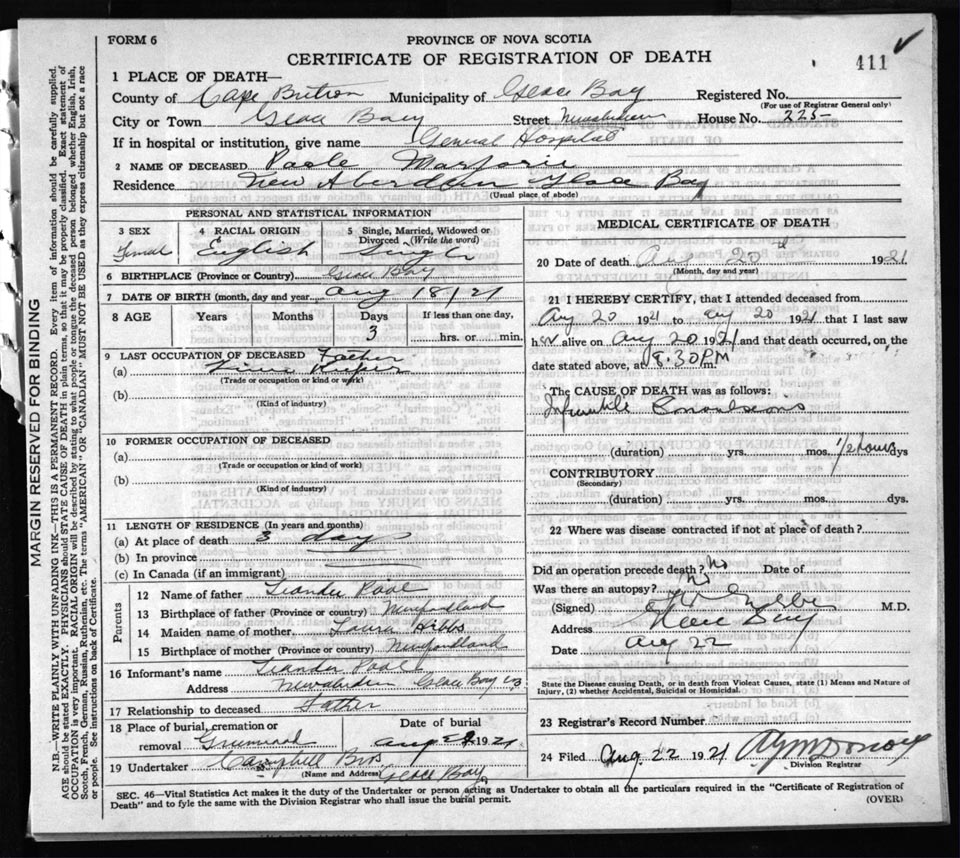 FORM 6
PROVINCE OF NOVA SCOTIA
CERTIFICATE OF REGISTRATION OF DEATH
411
1 PLACE OF DEATH—
County of Cape Breton Municipality of Glace Bay Registered No.
(For use of Registrar General only)
City or Town Glace Bay Street House No. 225
If in hospital or institution, give name General Hospital
2 NAME OF DECEASED Poole Marjorie
Residence New Aberdeen Glace Bay
(Usual place of abode)
PERSONAL AND STATISTICAL INFORMATION
3 SEX Female
4 RACIAL ORIGIN English
5 Single, Married, Widowed or Divorced (Write the word) Single
6 BIRTHPLACE (Province or Country) Glace Bay
7 DATE OF BIRTH (month, day and year) Aug 18/21
8 AGE Years Months Days If less than one day,
3 hrs. or min.
9 LAST OCCUPATION OF DECEASED Father
(a) Time Keeper
(Trade or occupation or kind or work)
(b)
(Kind of industry)
10 FORMER OCCUPATION OF DECEASED
(a)
(Trade or occupation or kind of work)
(b)
(Kind of industry)
11 LENGTH OF RESIDENCE (In years and months)
(a) At place of death 3 days
(b) In province
(c) In Canada (if an immigrant)
Parents
12 Name of father Leander Pool
13 Birthplace of father (Province or country) Newfoundland
14 Maiden name of mother Laura Hibbs
15 Birthplace of mother (Province or country) Newfoundland
16 Informant's name Leander Pool
Address Glace Bay
17 Relationship to deceased Father
18 Place of burial, cremation or removal Greenwood Date of burial Aug 1921
19 Undertaker Campbell Bros
(Name and Address) Glace Bay
MEDICAL CERTIFICATE OF DEATH
20 Date of death Aug 20th 1921
(Month, day and year)
21 I HEREBY CERTIFY, that I attended deceased from
Aug 20 1921 to Aug 20 1921 that I last saw
her alive on Aug 20 1921 and that death occurred, on the
date stated above, at 8.30 PM m.
The CAUSE OF DEATH was as follows:
Infantile Convulsions
(duration) yrs. mos. 1/2 hours dys
CONTRIBUTORY
(Secondary)
(duration) yrs. mos. dys.
22 Where was disease contracted if not at place of death?
Did an operation precede death? No Date of
Was there an autopsy? No
(Signed) M.D.
Address Glace Bay
Date Aug 22
State the Disease causing Death, or in death from Violent Causes, state (1) Means and Nature of
Injury, (2) whether Accidental, Suicidal or Homicidal.
23 Registrar's Record Number
24 Filed Aug 22 1921
Division Registrar
SEC. 46—Vital Statistics Act makes it the duty of the Undertaker or person acting as Undertaker to obtain all the particulars required in the "Certificate of Registration of
Death" and to fyle the same with the Division Registrar who shall issue the burial permit.
(OVER)
MARGIN RESERVED FOR BINDING
N.B.—WRITE PLAINLY WITH UNFADING INK—THIS IS A PERMANENT RECORD. Every item of information should be carefully supplied.
AGE should be stated EXACTLY. PHYSICIANS should STATE CAUSE OF DEATH in plain terms, so that it may be properly classified. Exact statement of
OCCUPATION is very important. RACIAL ORIGIN will be described by stating to what people or tongue the deceased person belonged whether English, Irish,
Scotch, French, German, Russian, Ruthenian, etc. The terms "AMERICAN" OR "CANADIAN" MUST NOT BE USED as they express citizenship but not a race
or people. See instructions on back of Certificate.